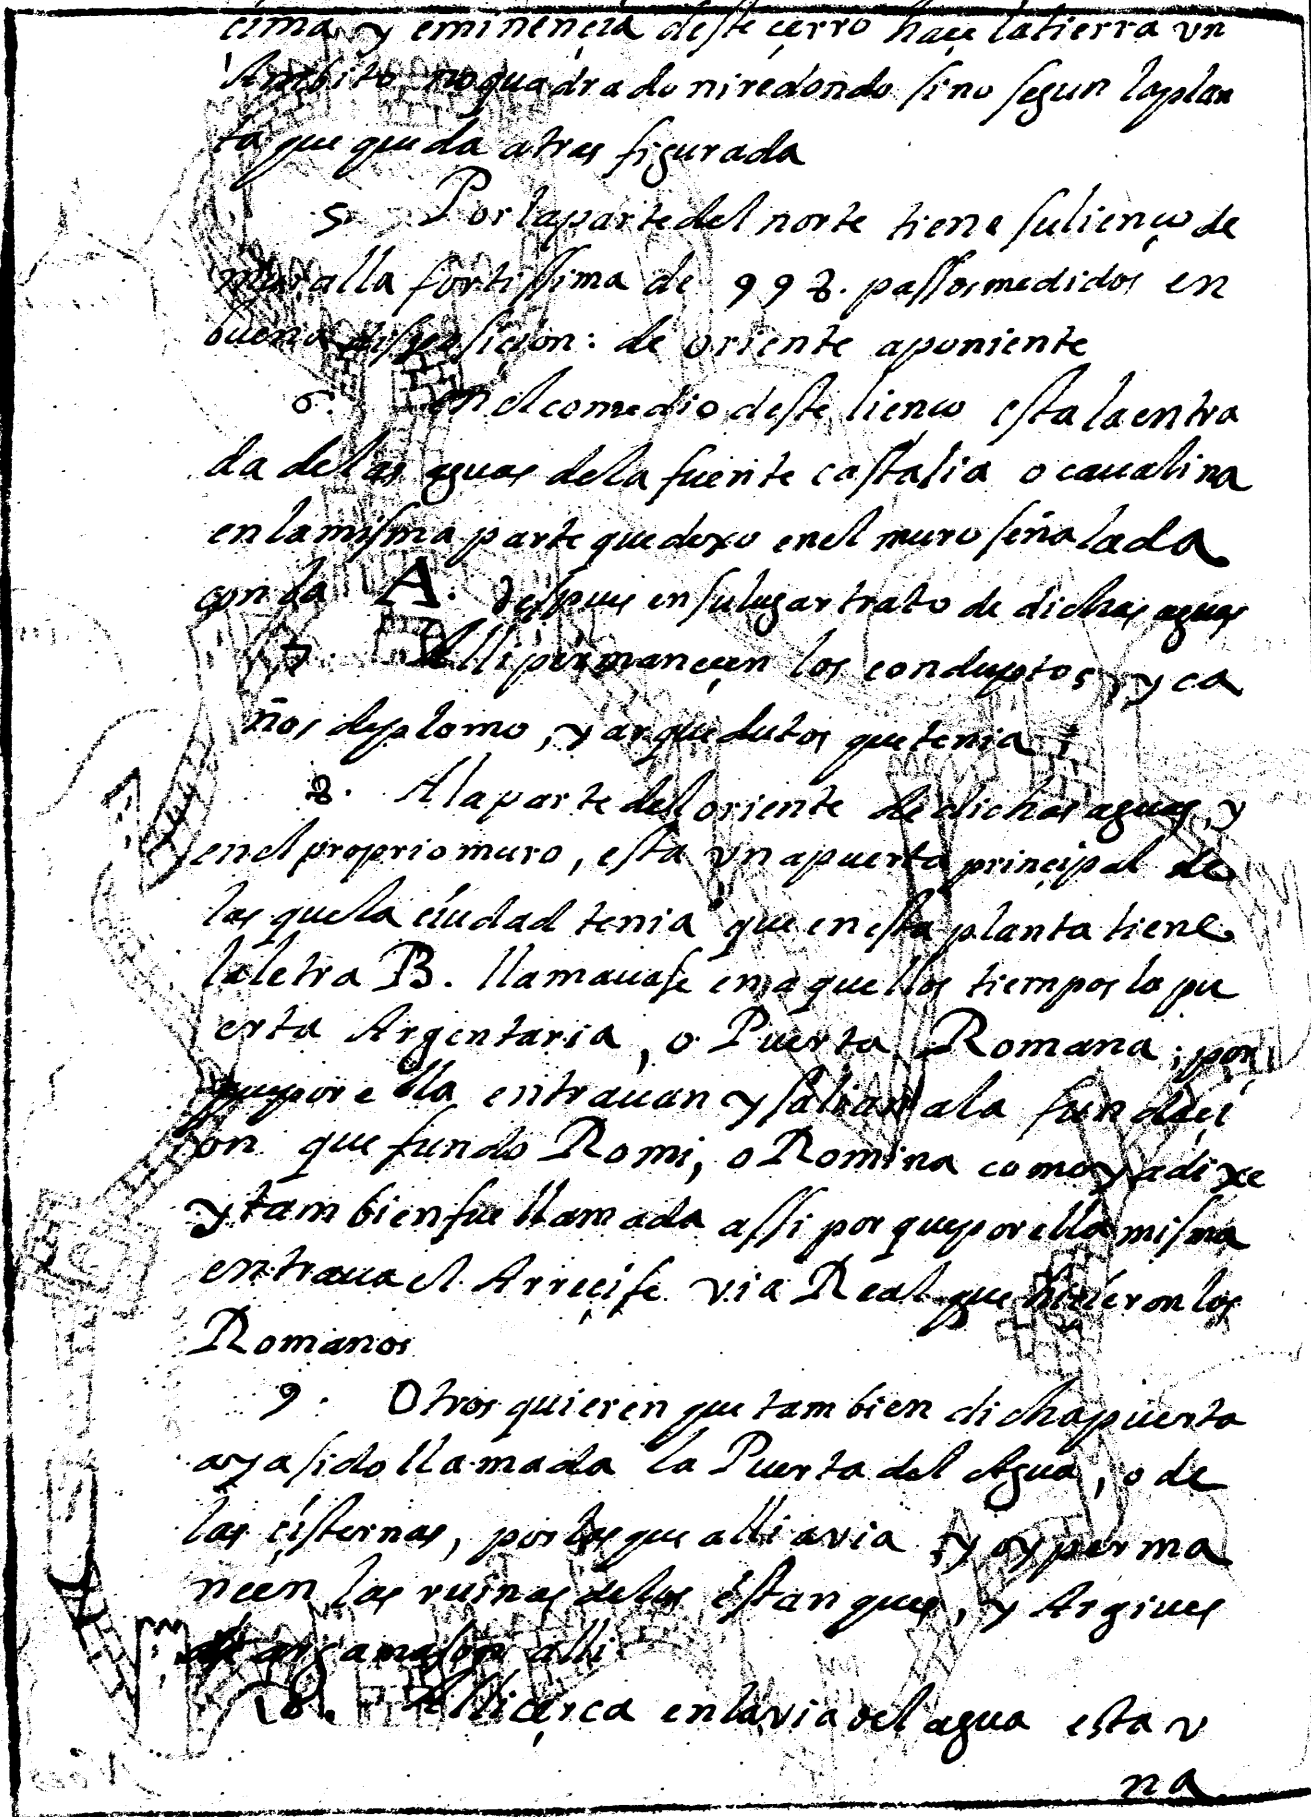 cima, y eminençia deste çerro haçe latierra vn
Ambito, noquadrado niredondo sino segun laplan
ta que queda atras figurada
5. Por laparte del norte tiene su lienço de
muralla fortissima de 998. passos medidos en
buena dispossicion: de oriente aponiente
6. en el comedio deste lienço esta la entra
da de las aguas dela fuente castalia o caualina
en la misma parte que dexo en el muro señalada
con la A. despues en su lugar trato de dichas aguas
7. Alli permaneçen los conductos, y ca
ños de plomo, y arquedutos que tenia;
8. Ala parte del oriente de dichas aguas, y
en el proprio muro, esta vna puerta prinçipal de
las que la ciudad tenia que en esta planta tiene
la letra B. llamauase en aquellos tiempos la pu
erta Argentaria, o Puerta Romana; por
que por ella entrauan y salian ala fundaçi
on que fundo Romi, o Romina como ya dixe
y tambien fue llamada assi porque por ella misma
entraua el Arreçife via Real que hiçieron los
Romanos
9. Otros quieren que tambien dicha puerta
aya sido llamada la Puerta del Agua, o de
las çisternas, por las que alli avia, y oy perma
neçen las ruinas de los estanques, y Argiues
de alli
10. Alli çerca en la via del agua esta v
na